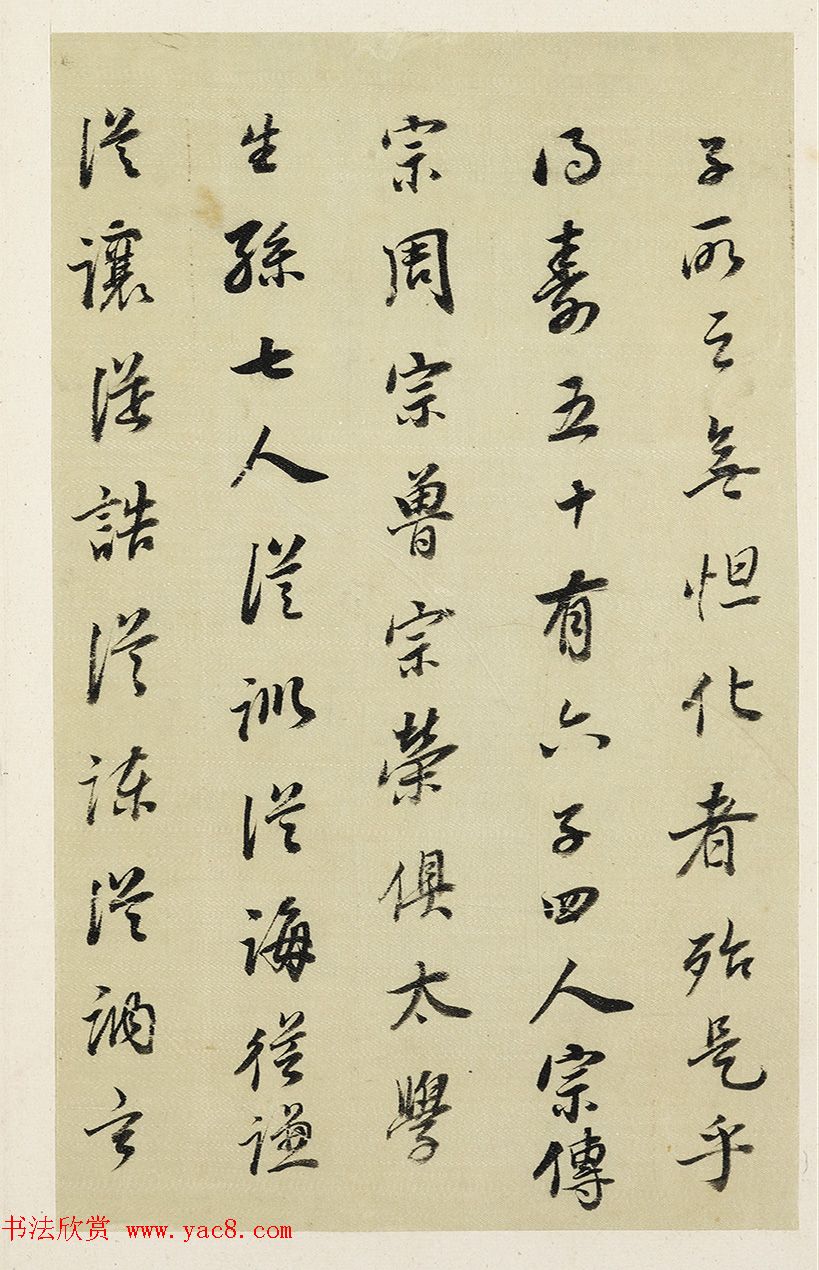 子所云無怛化者殆是乎
得壽五十有六子四人宗傳
宗周宗魯宗榮俱太學
生孫七人從訓從誨從謙
從讓從誥從諫從調玄
书法欣赏 www.yac8.com